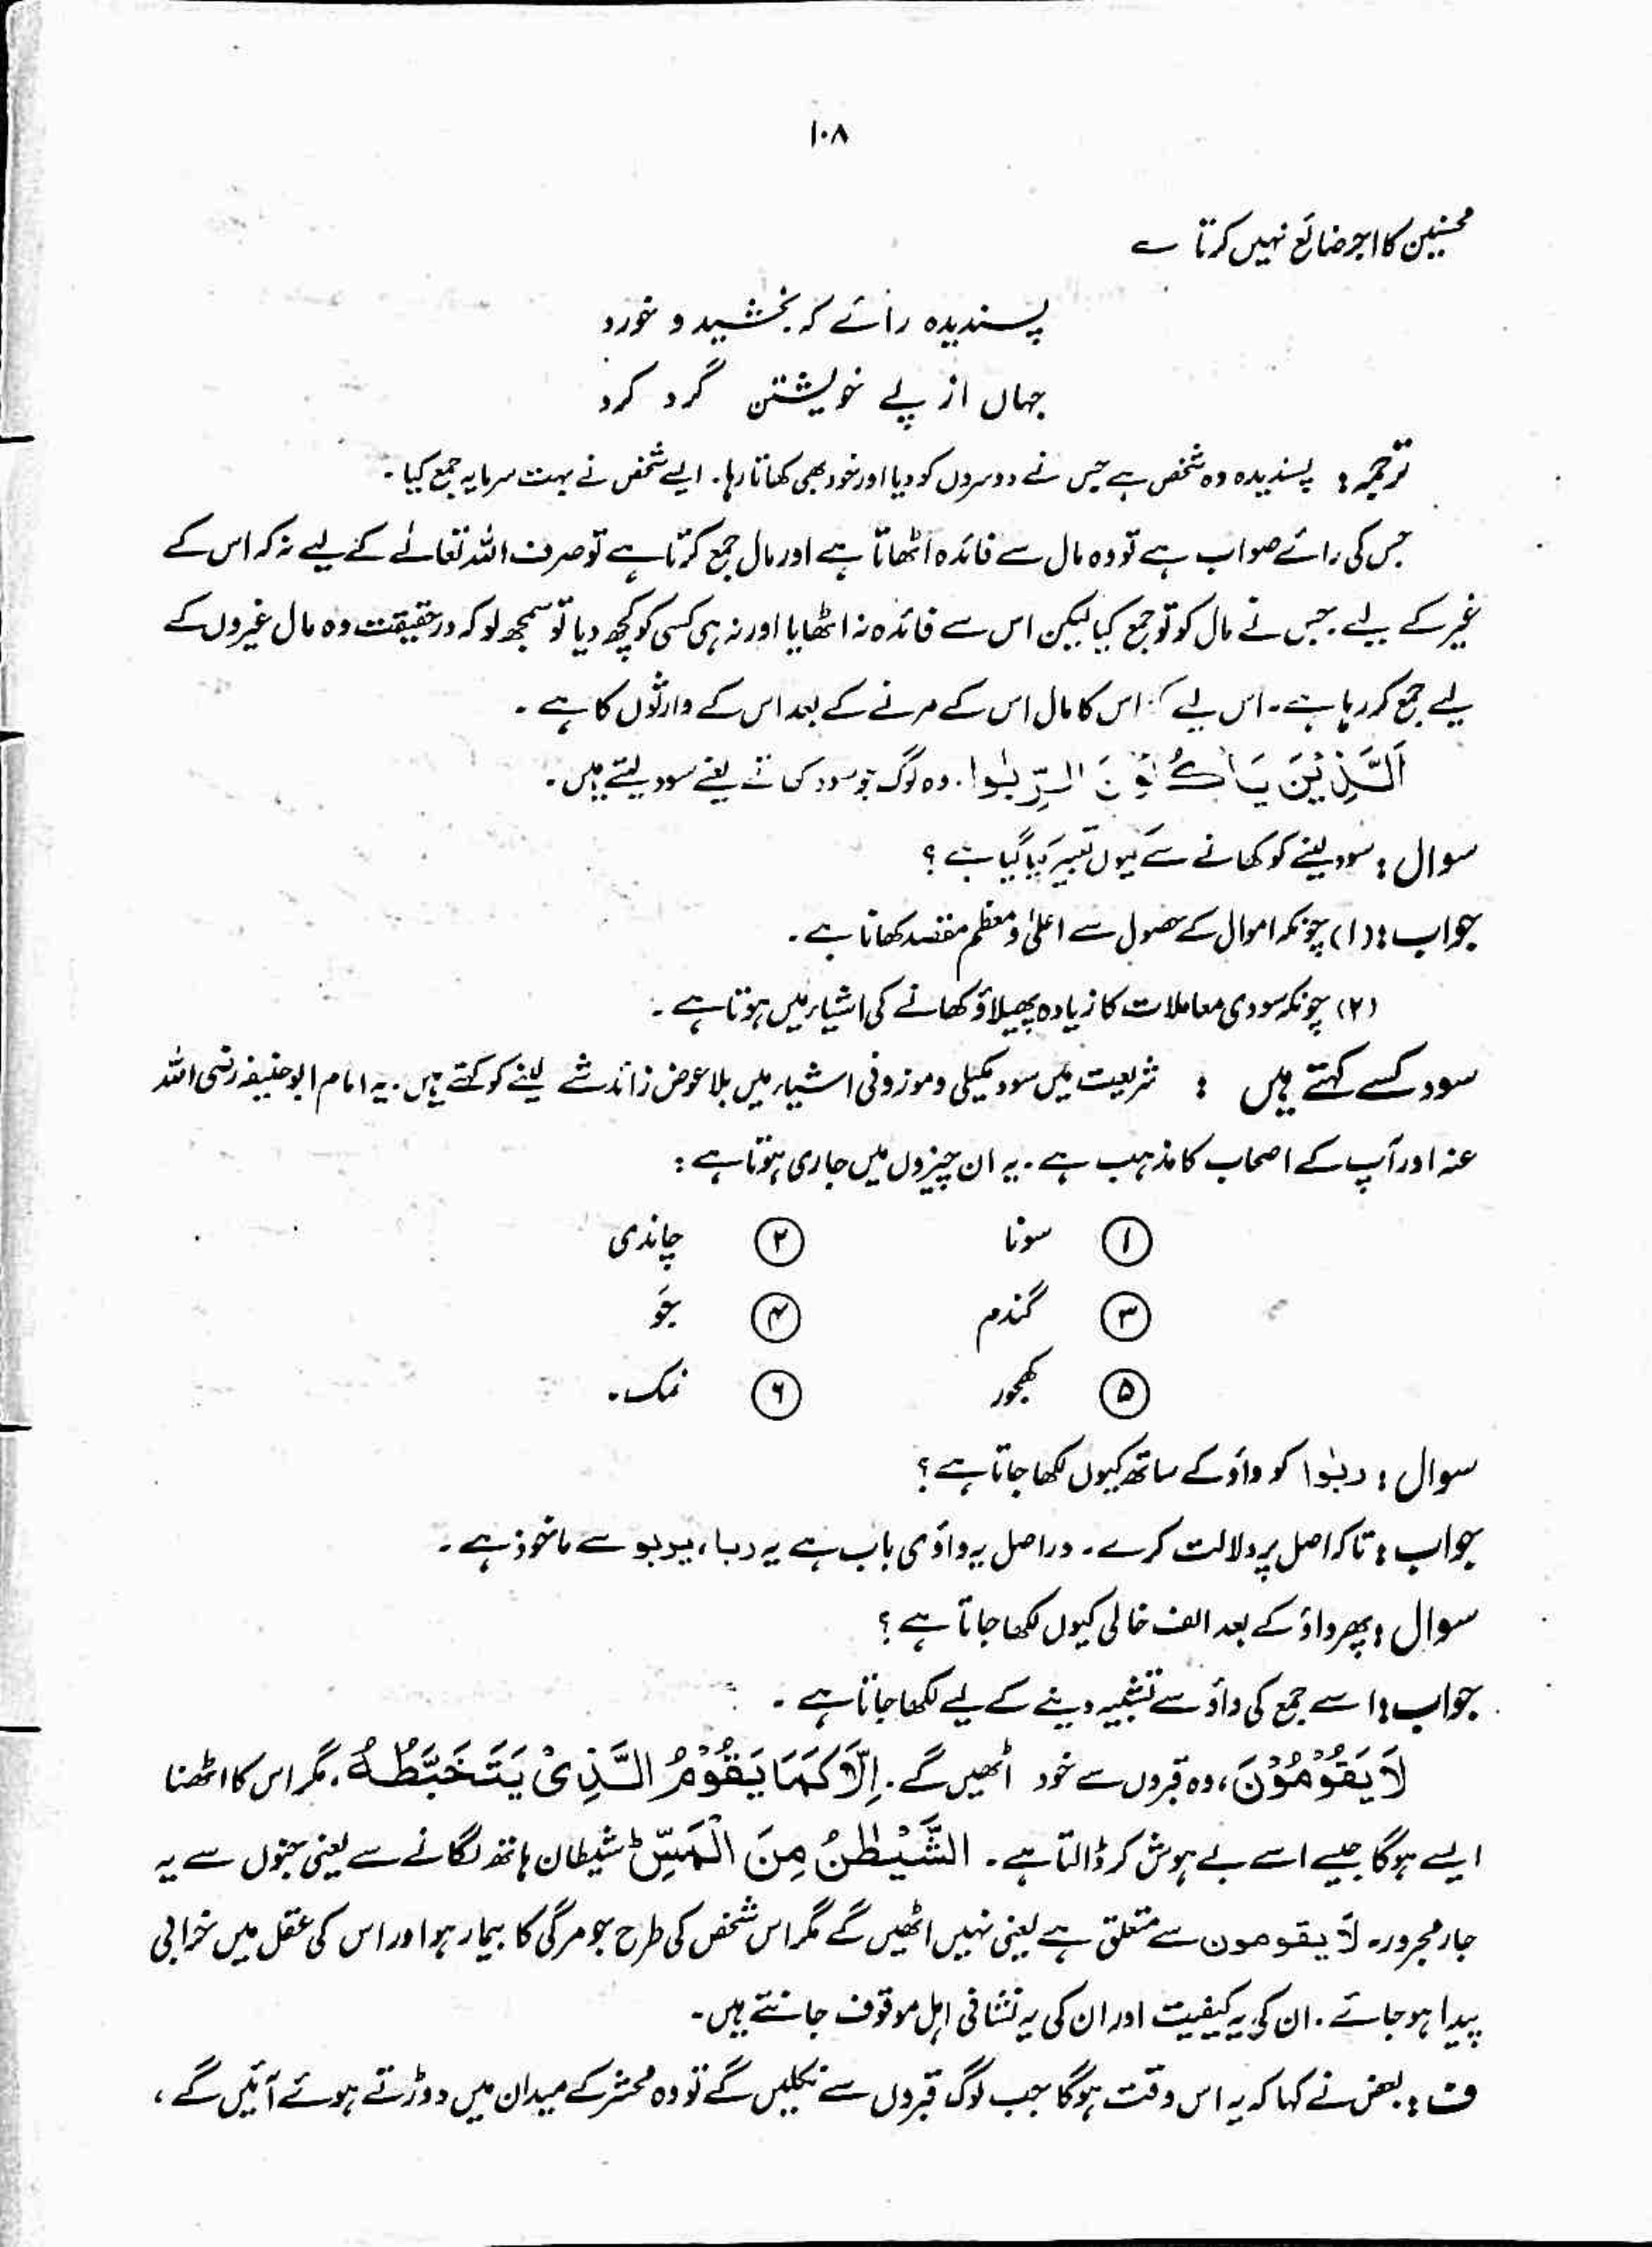 ۱۰۸
محسنین کا اجر ضائع نہیں کرتا ے
پسندیدہ رائے کہ بخشید و خورد
جہاں از پے خویشتن گرد کرد
ترجمہ : پسندیدہ وہ شخص ہے جس نے دوسروں کو دیا اور خود بھی کھاتا رہا۔ ایسے شخص نے بہت سرمایہ جمع کیا۔
جس کی رائے صواب ہے تو وہ مال سے فائدہ اٹھاتا ہے اور مال جمع کرتا ہے تو صرف اللہ تعالےٰ کے لیے نہ کہ اس کے
غیر کے لیے۔ جس نے مال کو تو جمع کیا لیکن اس سے فائدہ نہ اٹھایا اور نہ ہی کسی کو کچھ دیا تو سمجھ لو کہ درحقیقت وہ مال غیروں کے
لیے جمع کر رہا ہے۔ اس لیے کہ اس کا مال اس کے مرنے کے بعد اس کے وارثوں کا ہے۔
اَلَّذِیْنَ یَاْکُلُوْنَ الرِّبٰوا۔ وہ لوگ جو سود کھاتے یعنے سود لیتے ہیں۔
سوال : سود لینے کو کھانے سے کیوں تعبیر کیا گیا ہے ؟
جواب : (۱) چونکہ اموال کے حصول سے اعلیٰ و معظم مقصد کھانا ہے۔
(۲) چونکہ سودی معاملات کا زیادہ پھیلاؤ کھانے کی اشیاء میں ہوتا ہے۔
سود کسے کہتے ہیں : شریعت میں سود مکیلی و موزونی اشیاء میں بلا عوض زائد شے لینے کو کہتے ہیں۔ یہ امام ابو حنیفہ رضی اللہ
عنہ اور آپ کے اصحاب کا مذہب ہے۔ یہ ان چیزوں میں جاری ہوتا ہے :
① سونا ② چاندی
③ گندم ④ جَو
⑤ کھجور ⑥ نمک۔
سوال : ربٰوا کو واؤ کے ساتھ کیوں لکھا جاتا ہے ؟
جواب : تاکہ اصل پر دلالت کرے۔ دراصل یہ واؤی باب ہے یہ ربا، یربو سے ماخوذ ہے۔
سوال : پھر واؤ کے بعد الف خالی کیوں لکھا جاتا ہے ؟
جواب : اسے جمع کی واؤ سے تشبیہ دینے کے لیے لکھا جاتا ہے۔
لَا یَقُوْمُوْنَ، وہ قبروں سے خود اٹھیں گے۔ اِلَّا کَمَا یَقُوْمُ الَّذِیْ یَتَخَبَّطُہُ۔ مگر اس کا اٹھنا
ایسے ہوگا جیسے اسے بے ہوش کر ڈالتا ہے۔ الشَّیْطٰنُ مِنَ الْمَسِّ ط شیطان ہاتھ لگانے سے یعنی جنوں سے یہ
جار مجرور۔ لَا یقومون سے متعلق ہے یعنی نہیں اٹھیں گے مگر اس شخص کی طرح جو مرگی کا بیمار ہو اور اس کی عقل میں خرابی
پیدا ہو جائے۔ ان کی یہ کیفیت اور ان کی یہ نشانی اہل موقوف جانتے ہیں۔
ف : بعض نے کہا کہ یہ اس وقت ہوگا جب لوگ قبروں سے نکلیں گے تو وہ محشر کے میدان میں دوڑتے ہوئے آئیں گے،